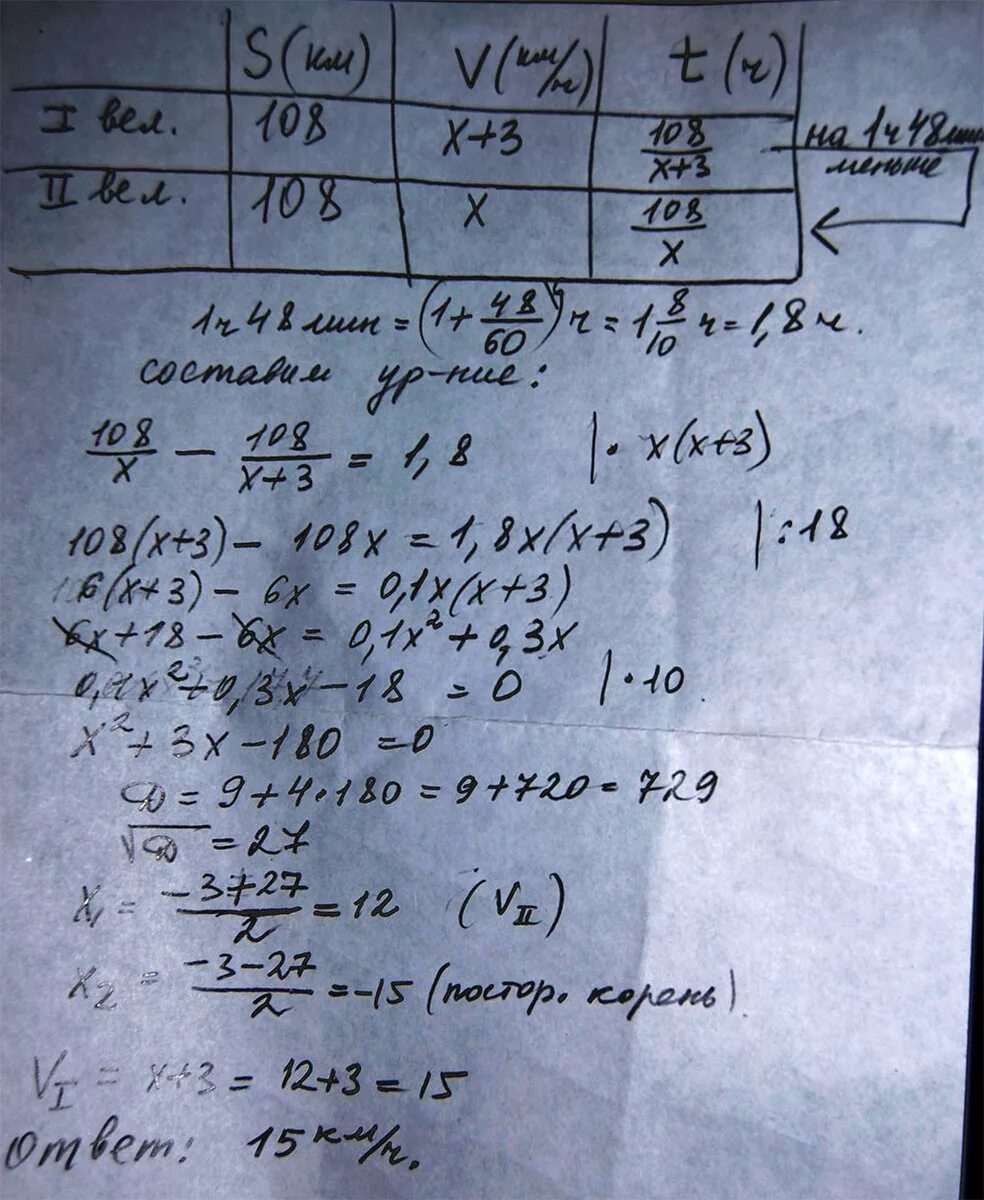 S(км) V(км/ч) t(ч)
I вел. 108 x+3 108/(x+3) на 1ч 48мин меньше
II вел. 108 x 108/x
1ч 48 мин = (1+48/60) ч = 1 8/10 ч = 1,8 ч.
составим ур-ние:
108/x − 108/(x+3) = 1,8 |· x(x+3)
108(x+3) − 108x = 1,8x(x+3) |:18
6(x+3) − 6x = 0,1x(x+3)
6x+18−6x = 0,1x²+0,3x
0,1x²+0,3x−18 = 0 |·10
x²+3x−180 = 0
D = 9+4·180 = 9+720 = 729
√D = 27
x₁ = (−3+27)/2 = 12 (V_II)
x₂ = (−3−27)/2 = −15 (постор. корень)
V_I = x+3 = 12+3 = 15
Ответ: 15 км/ч.